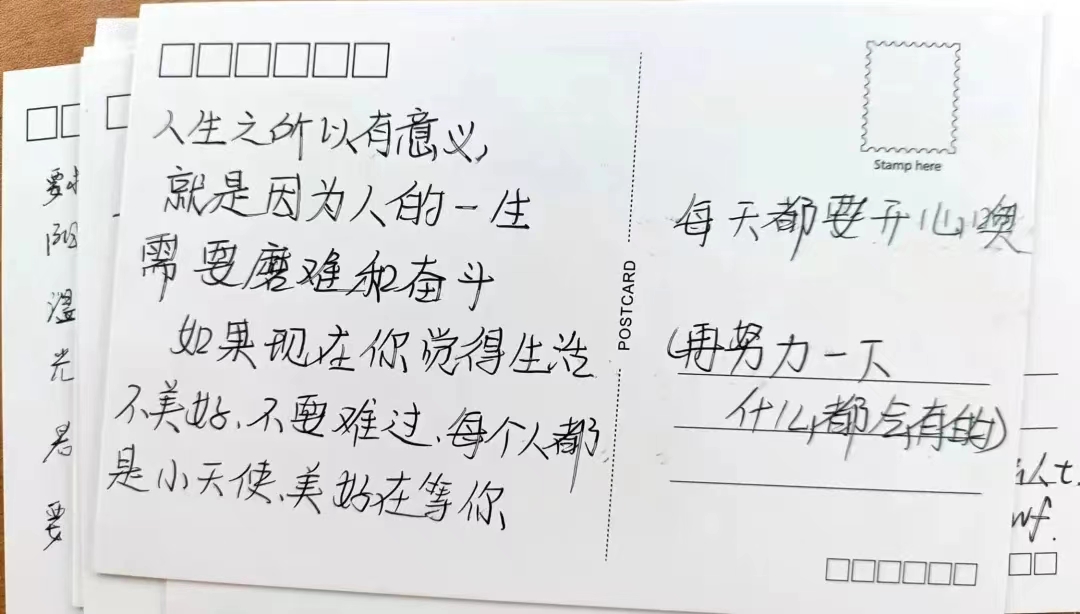 人生之所以有意义,
就是因为人的一生
需要磨难和奋斗
如果现在你觉得生活
不美好、不要难过、每个人都
是小天使、美好在等你、
POSTCARD
Stamp here
每天都要开心噢
(再努力一下
什么都会有的)
温
光
要